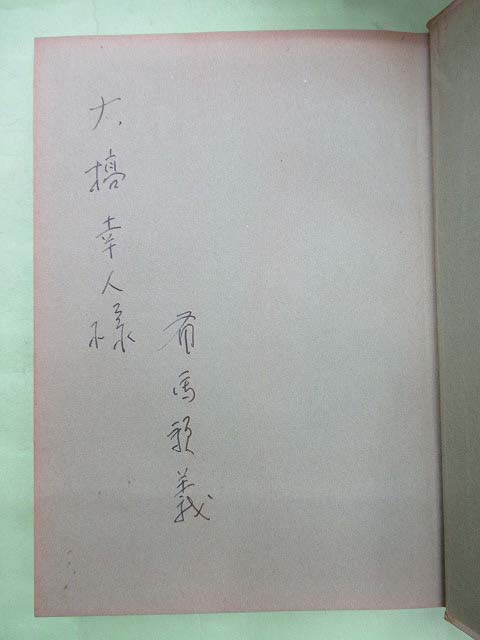 大橋幸人様
有馬頼義